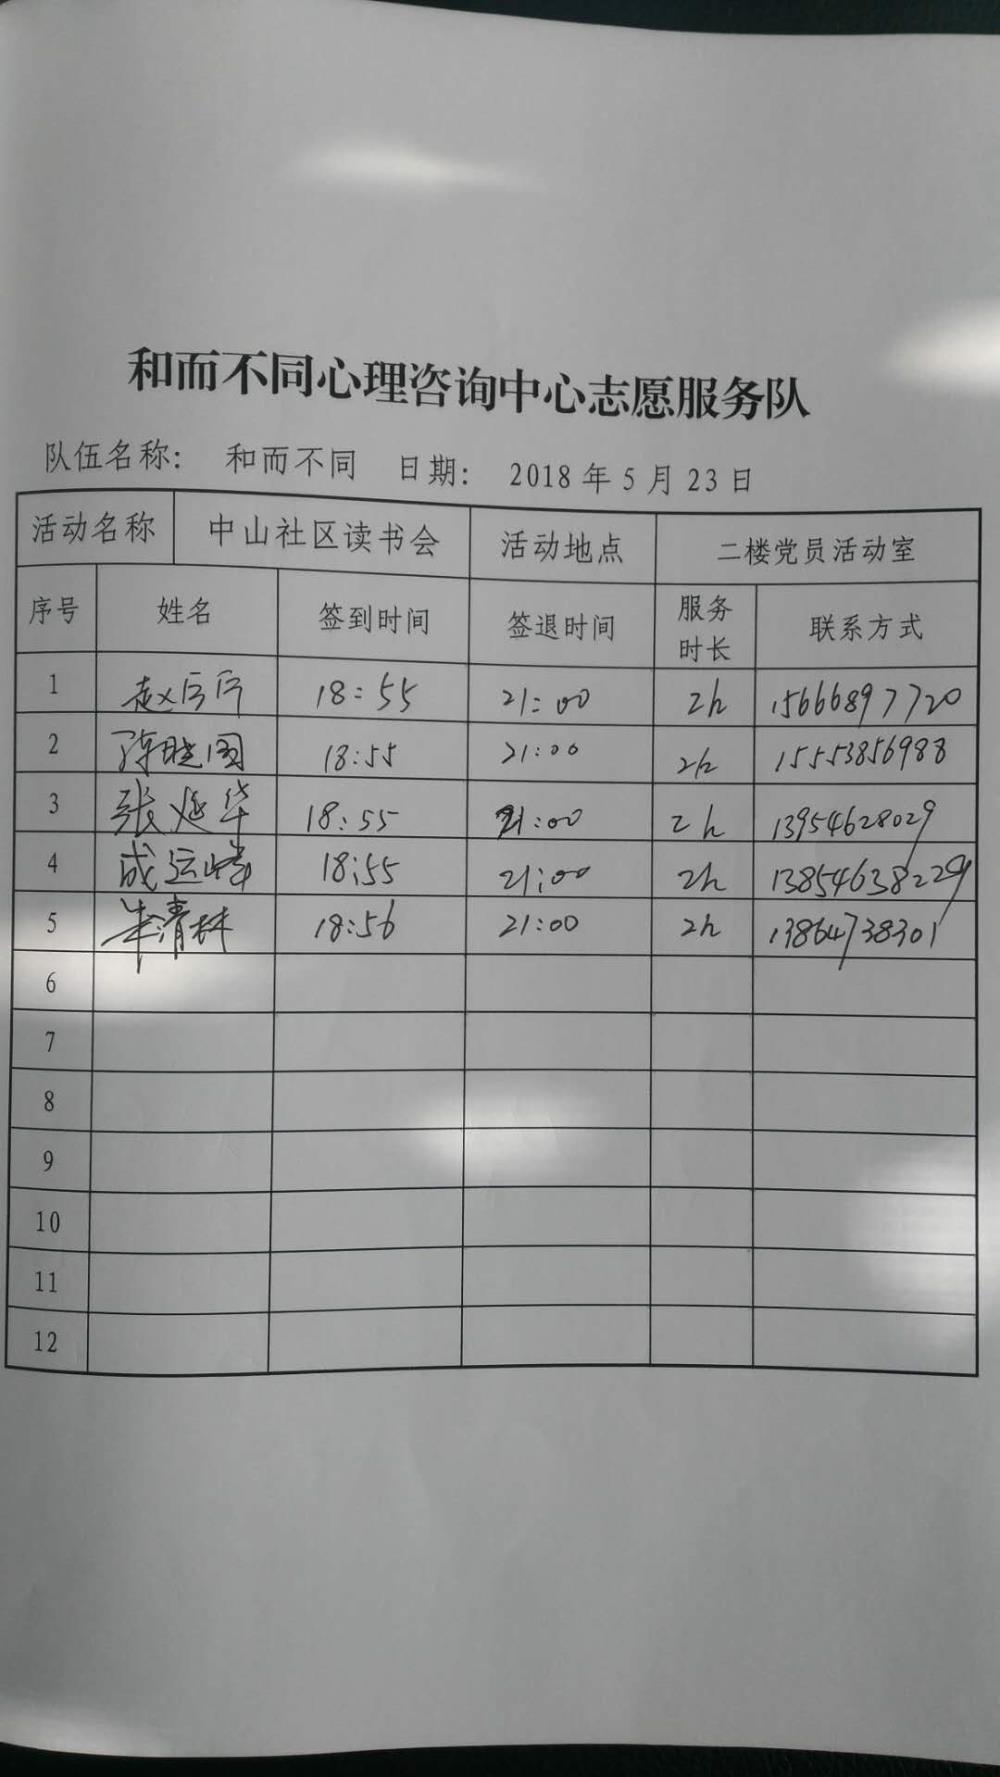 和而不同心理咨询中心志愿服务队
队伍名称: 和而不同 日期: 2018年5月23日
活动名称 中山社区读书会 活动地点 二楼党员活动室
序号 姓名 签到时间 签退时间 服务时长 联系方式
1 赵 18:55 21:00 2h 15666897720
2 陈晓国 18:55 21:00 2h 15553856988
3 张延华 18:55 21:00 2h 13954628029
4 成运峰 18:55 21:00 2h 13854638229
5 牟清林 18:56 21:00 2h 13864738301
6
7
8
9
10
11
12